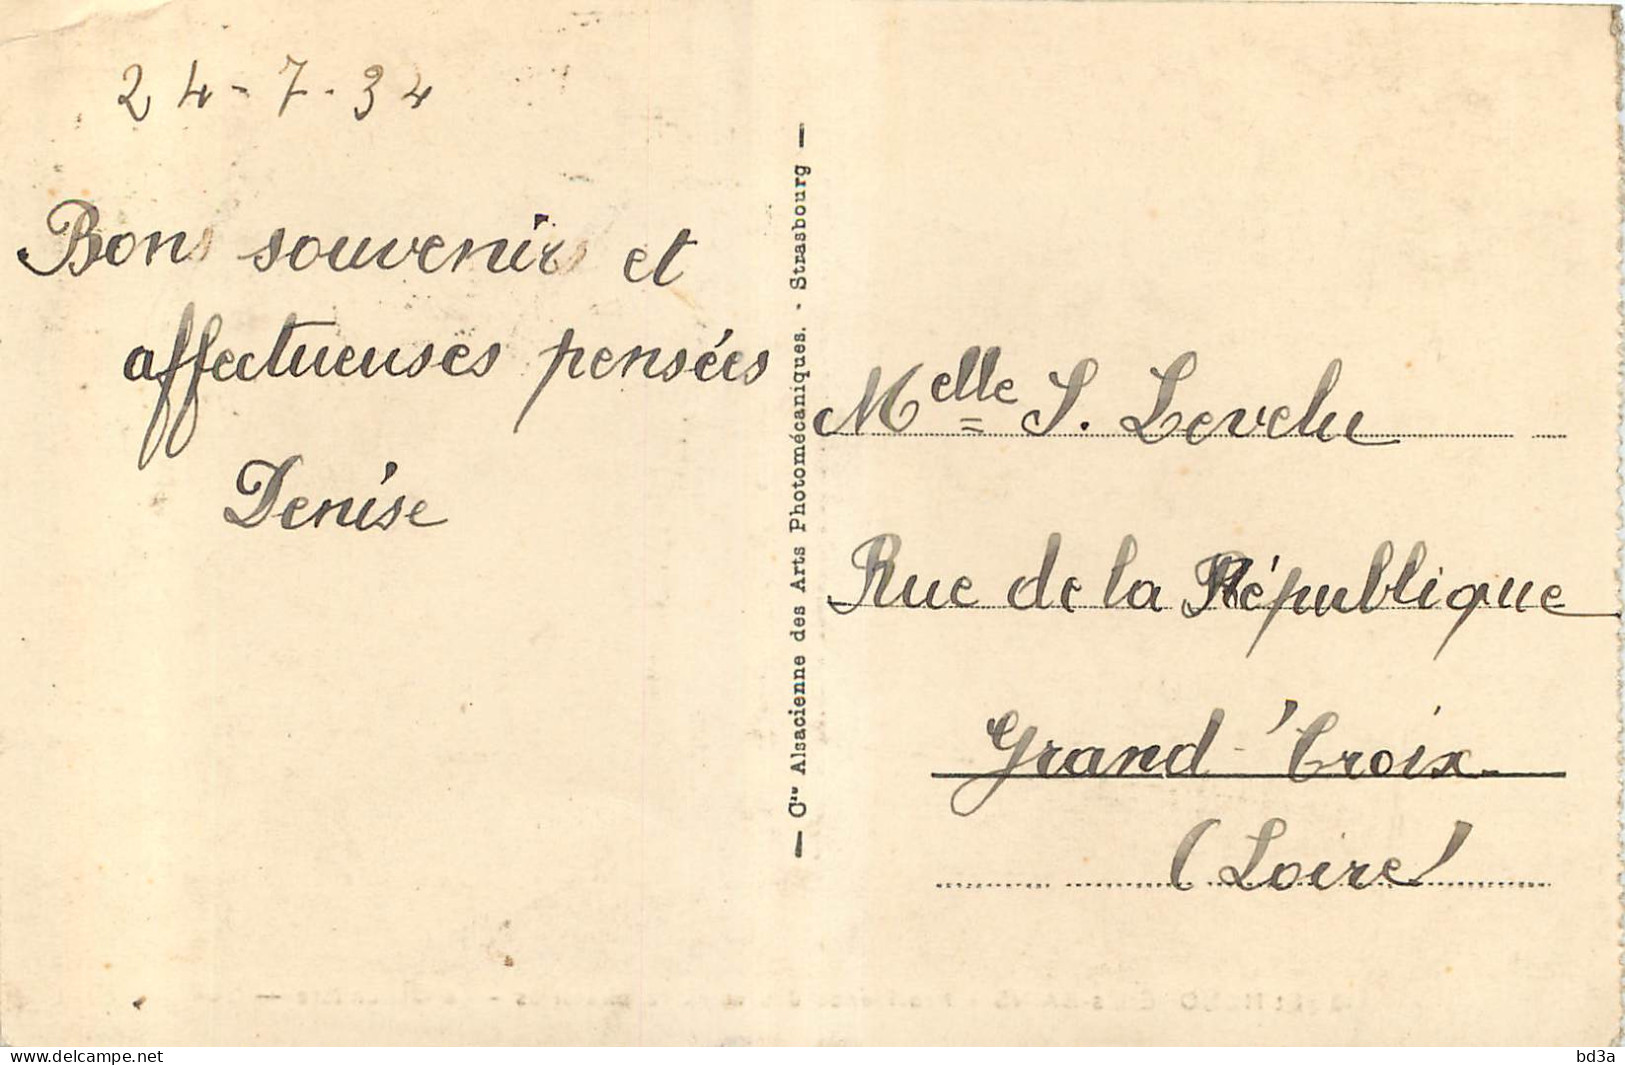 24-7-34
Bons souvenirs et
affectueuses pensées
Denise
— Cie Alsacienne des Arts Photomécaniques. - Strasbourg —
Melle S. Levelu
Rue de la République
Grand-Croix
(Loire)
www.delcampe.net
bd3a